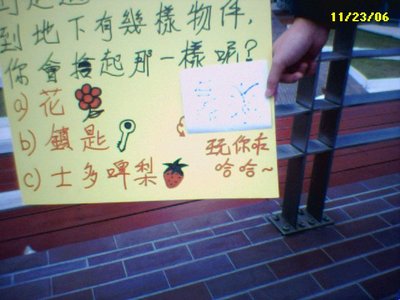 11/23/06
到地下有幾樣物件，
你會拾起那一樣呢？
a) 花
b) 鎖匙
c) 士多啤梨
玩你咋
哈哈~